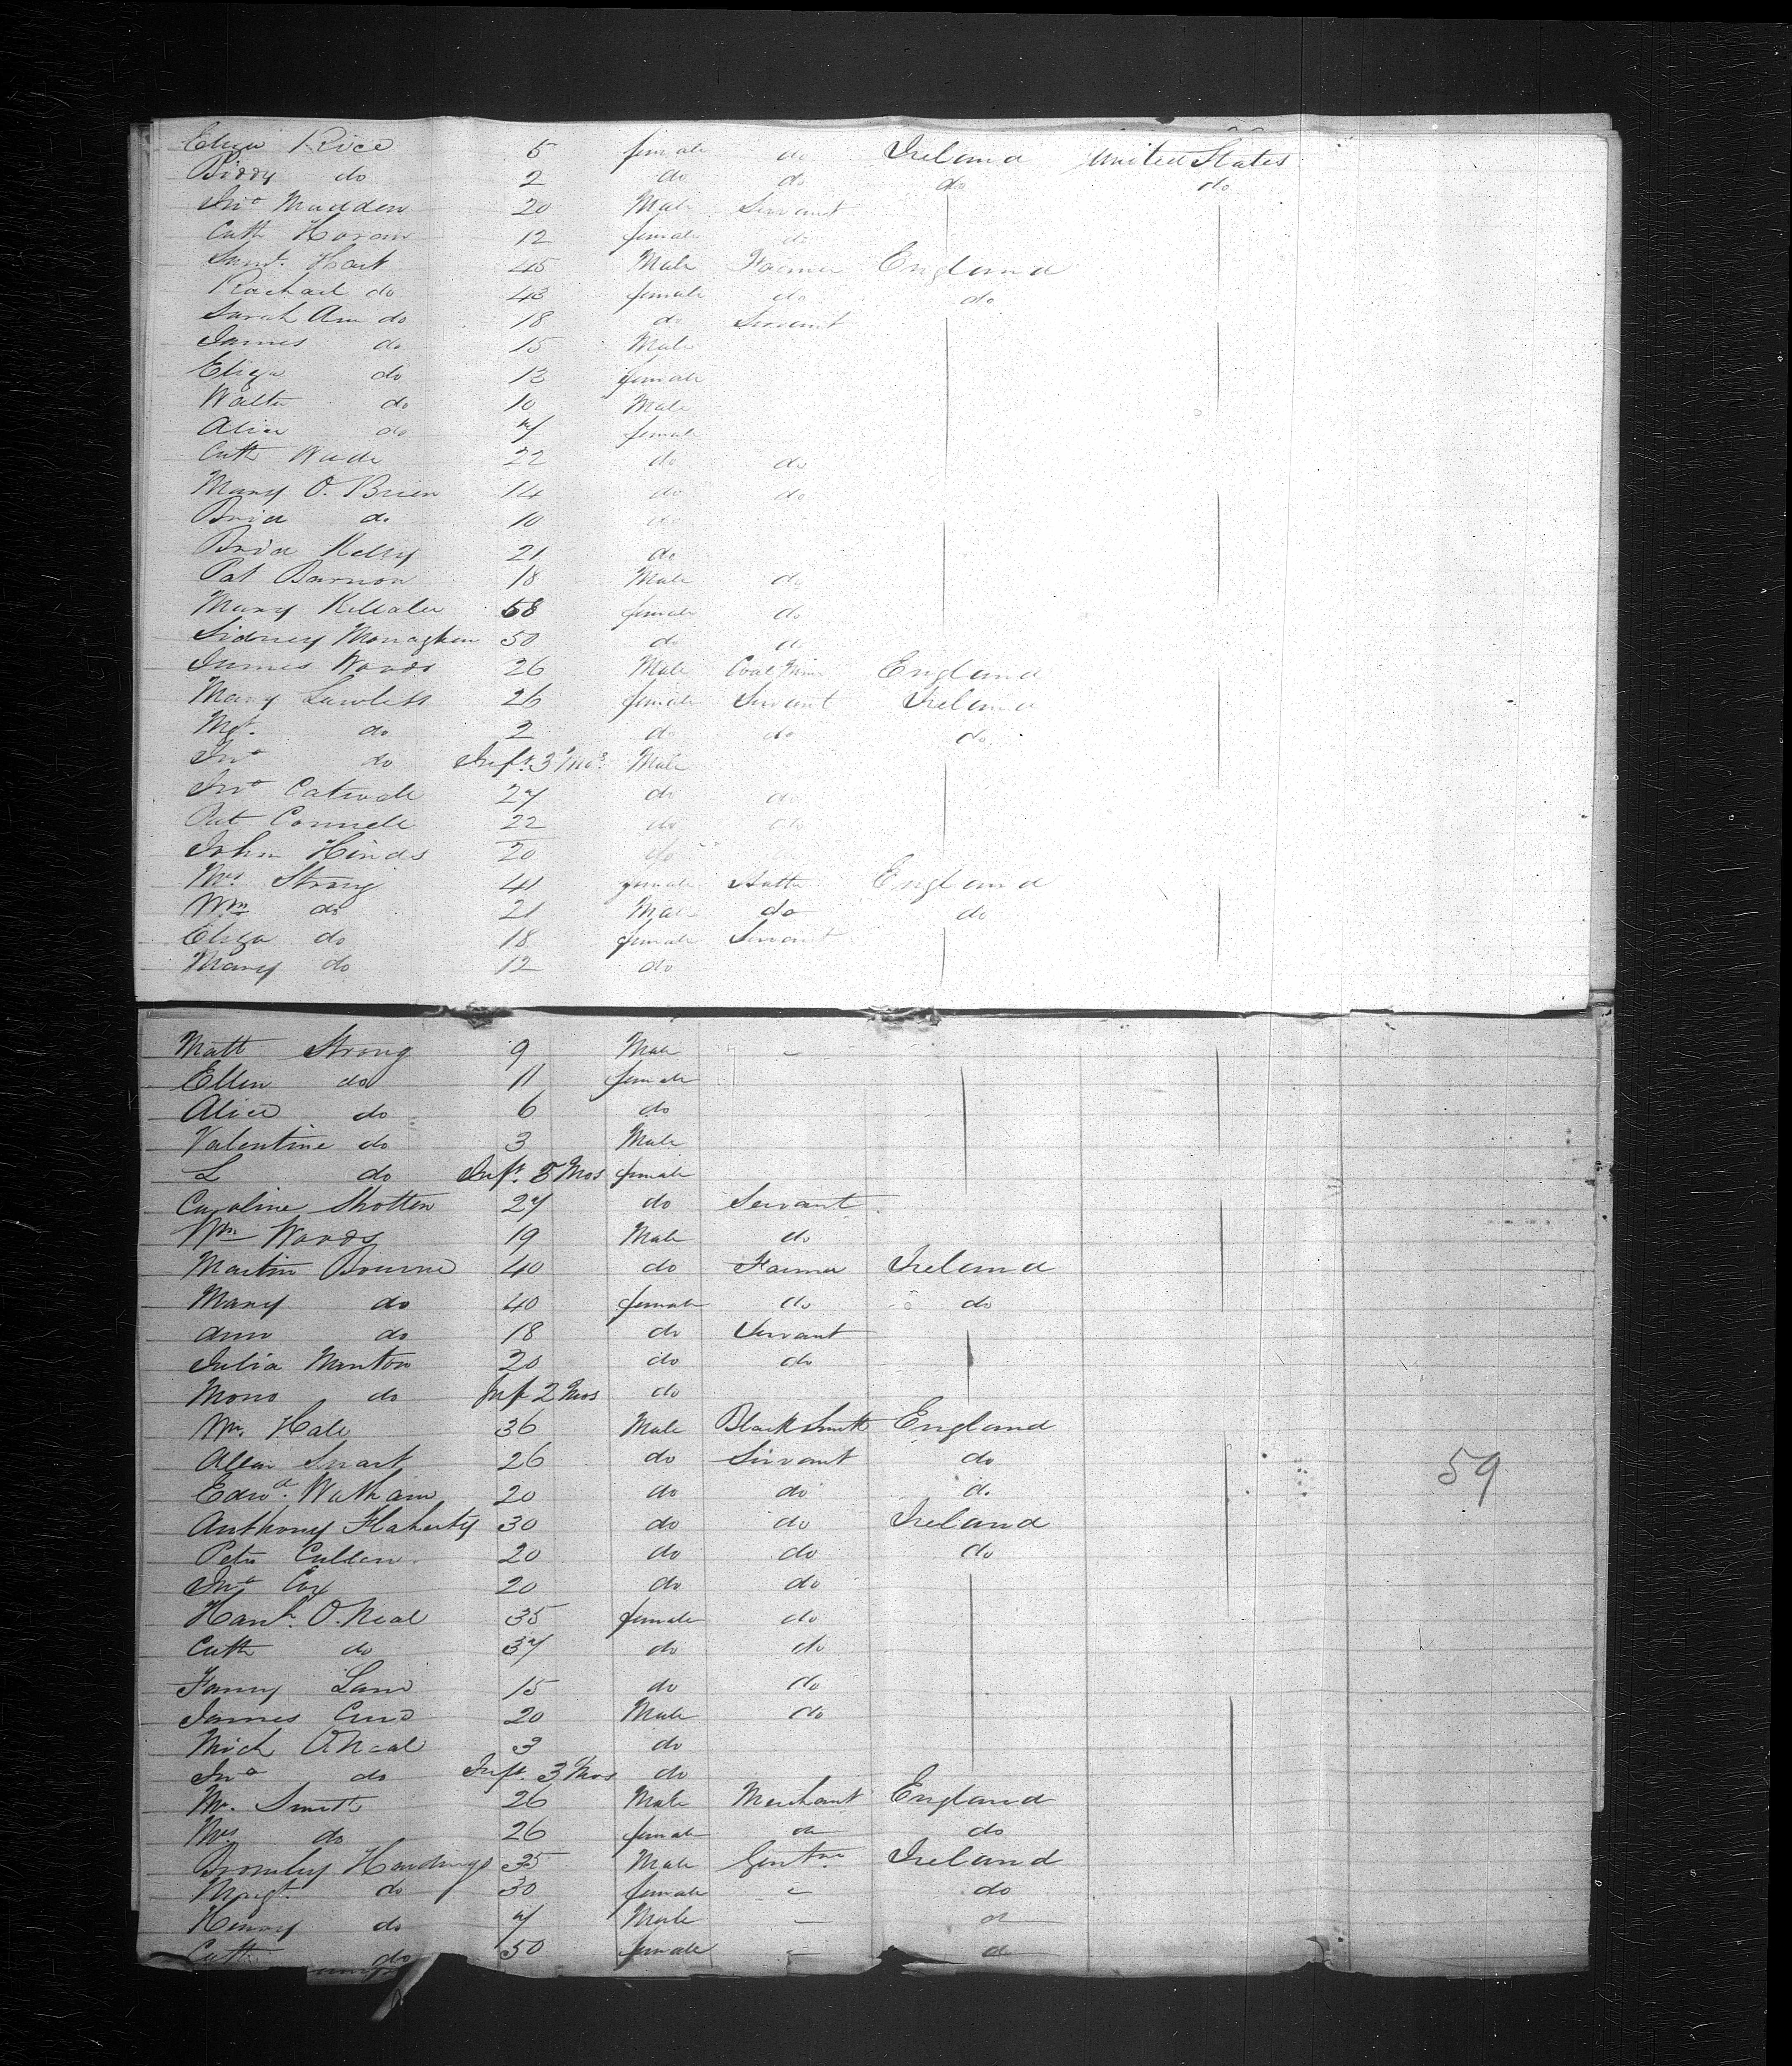 Eliza Rice 5 female do Ireland United States
Biddy do 2 do do do do
Jno Madden 20 Male Servant
Cath Horan 12 female do
Saml. Hart 45 Male Farmer England
Rachael do 43 female do do
Sarah Ann do 18 do Servant
James do 15 Male
Eliza do 12 female
Walter do 10 Male
Alice do 7 female
Cath Wade 22 do do
Mary O. Brien 14 do do
Brid do 10 do
Brid Kelly 21 do
Pat Barnon 18 Male do
Mary Kelealer 58 female do
Sidney Monaghan 50 do do
James Woods 26 Male Coal Miner England
Mary Lawless 26 female Servant Ireland
Mgt. do 2 do do do
Jno do Inft. 3 Mos. Male
Jno 27 do do
Pat Connell 22 do do
John Hinds 20 do
Mrs Strong 41 female England
Wm do 21 Male do do
Eliza do 18 female Servant
Mary do 12 do
Matt Strong 9 Male
Ellen do 11 female
Alice do 6 do
Valentine do 3 Male
L do Inft. 5 Mos female
Caroline Shotten 27 do Servant
Wm Woods 19 Male do
Martin Bourne 40 do Farmer Ireland
Mary do 40 female do do
Ann do 18 do Servant
Julia Manton 20 do do
Mono do Inft 2 Mos do
Wm. Hale 36 Male Black Smith England
Allen Smart 26 do Servant do
Edwd. Watham 20 do do do
59
Anthony Flaherty 30 do do Ireland
Peter Cullen 20 do do do
Jno Cox 20 do do
Hanh. O. Neal 35 female do
Cath do 37 do do
Fanny Lane 15 do do
James 20 Male do
Mich ONeal 3 do
Jno do Inft. 3 Mos do
Mr. Smith 26 Male Merchant England
Mrs do 26 female do do
Bromley Hardings 35 Male Gentm Ireland
Margt. do 30 female do
Henry do 7 Male do
Cath do 50 female do